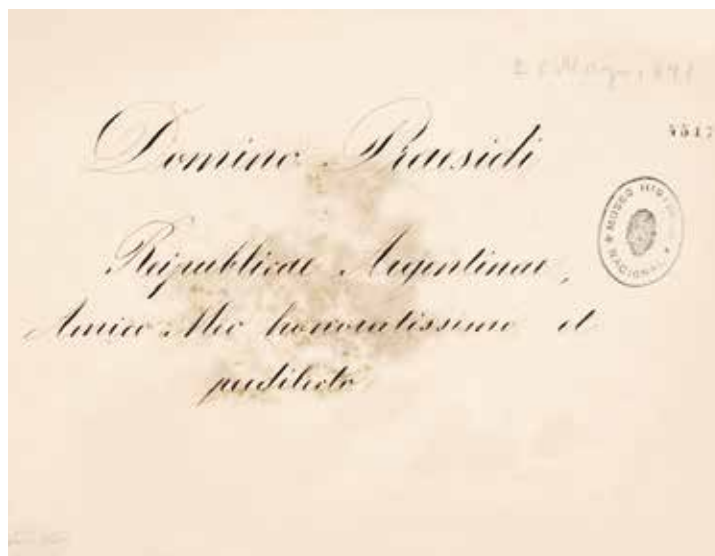 Domino Praesidi
4517
MUSEO HISTORICO
NACIONAL
Reipublicae Argentinae,
Amico Meo honoratissimo et
predilecto